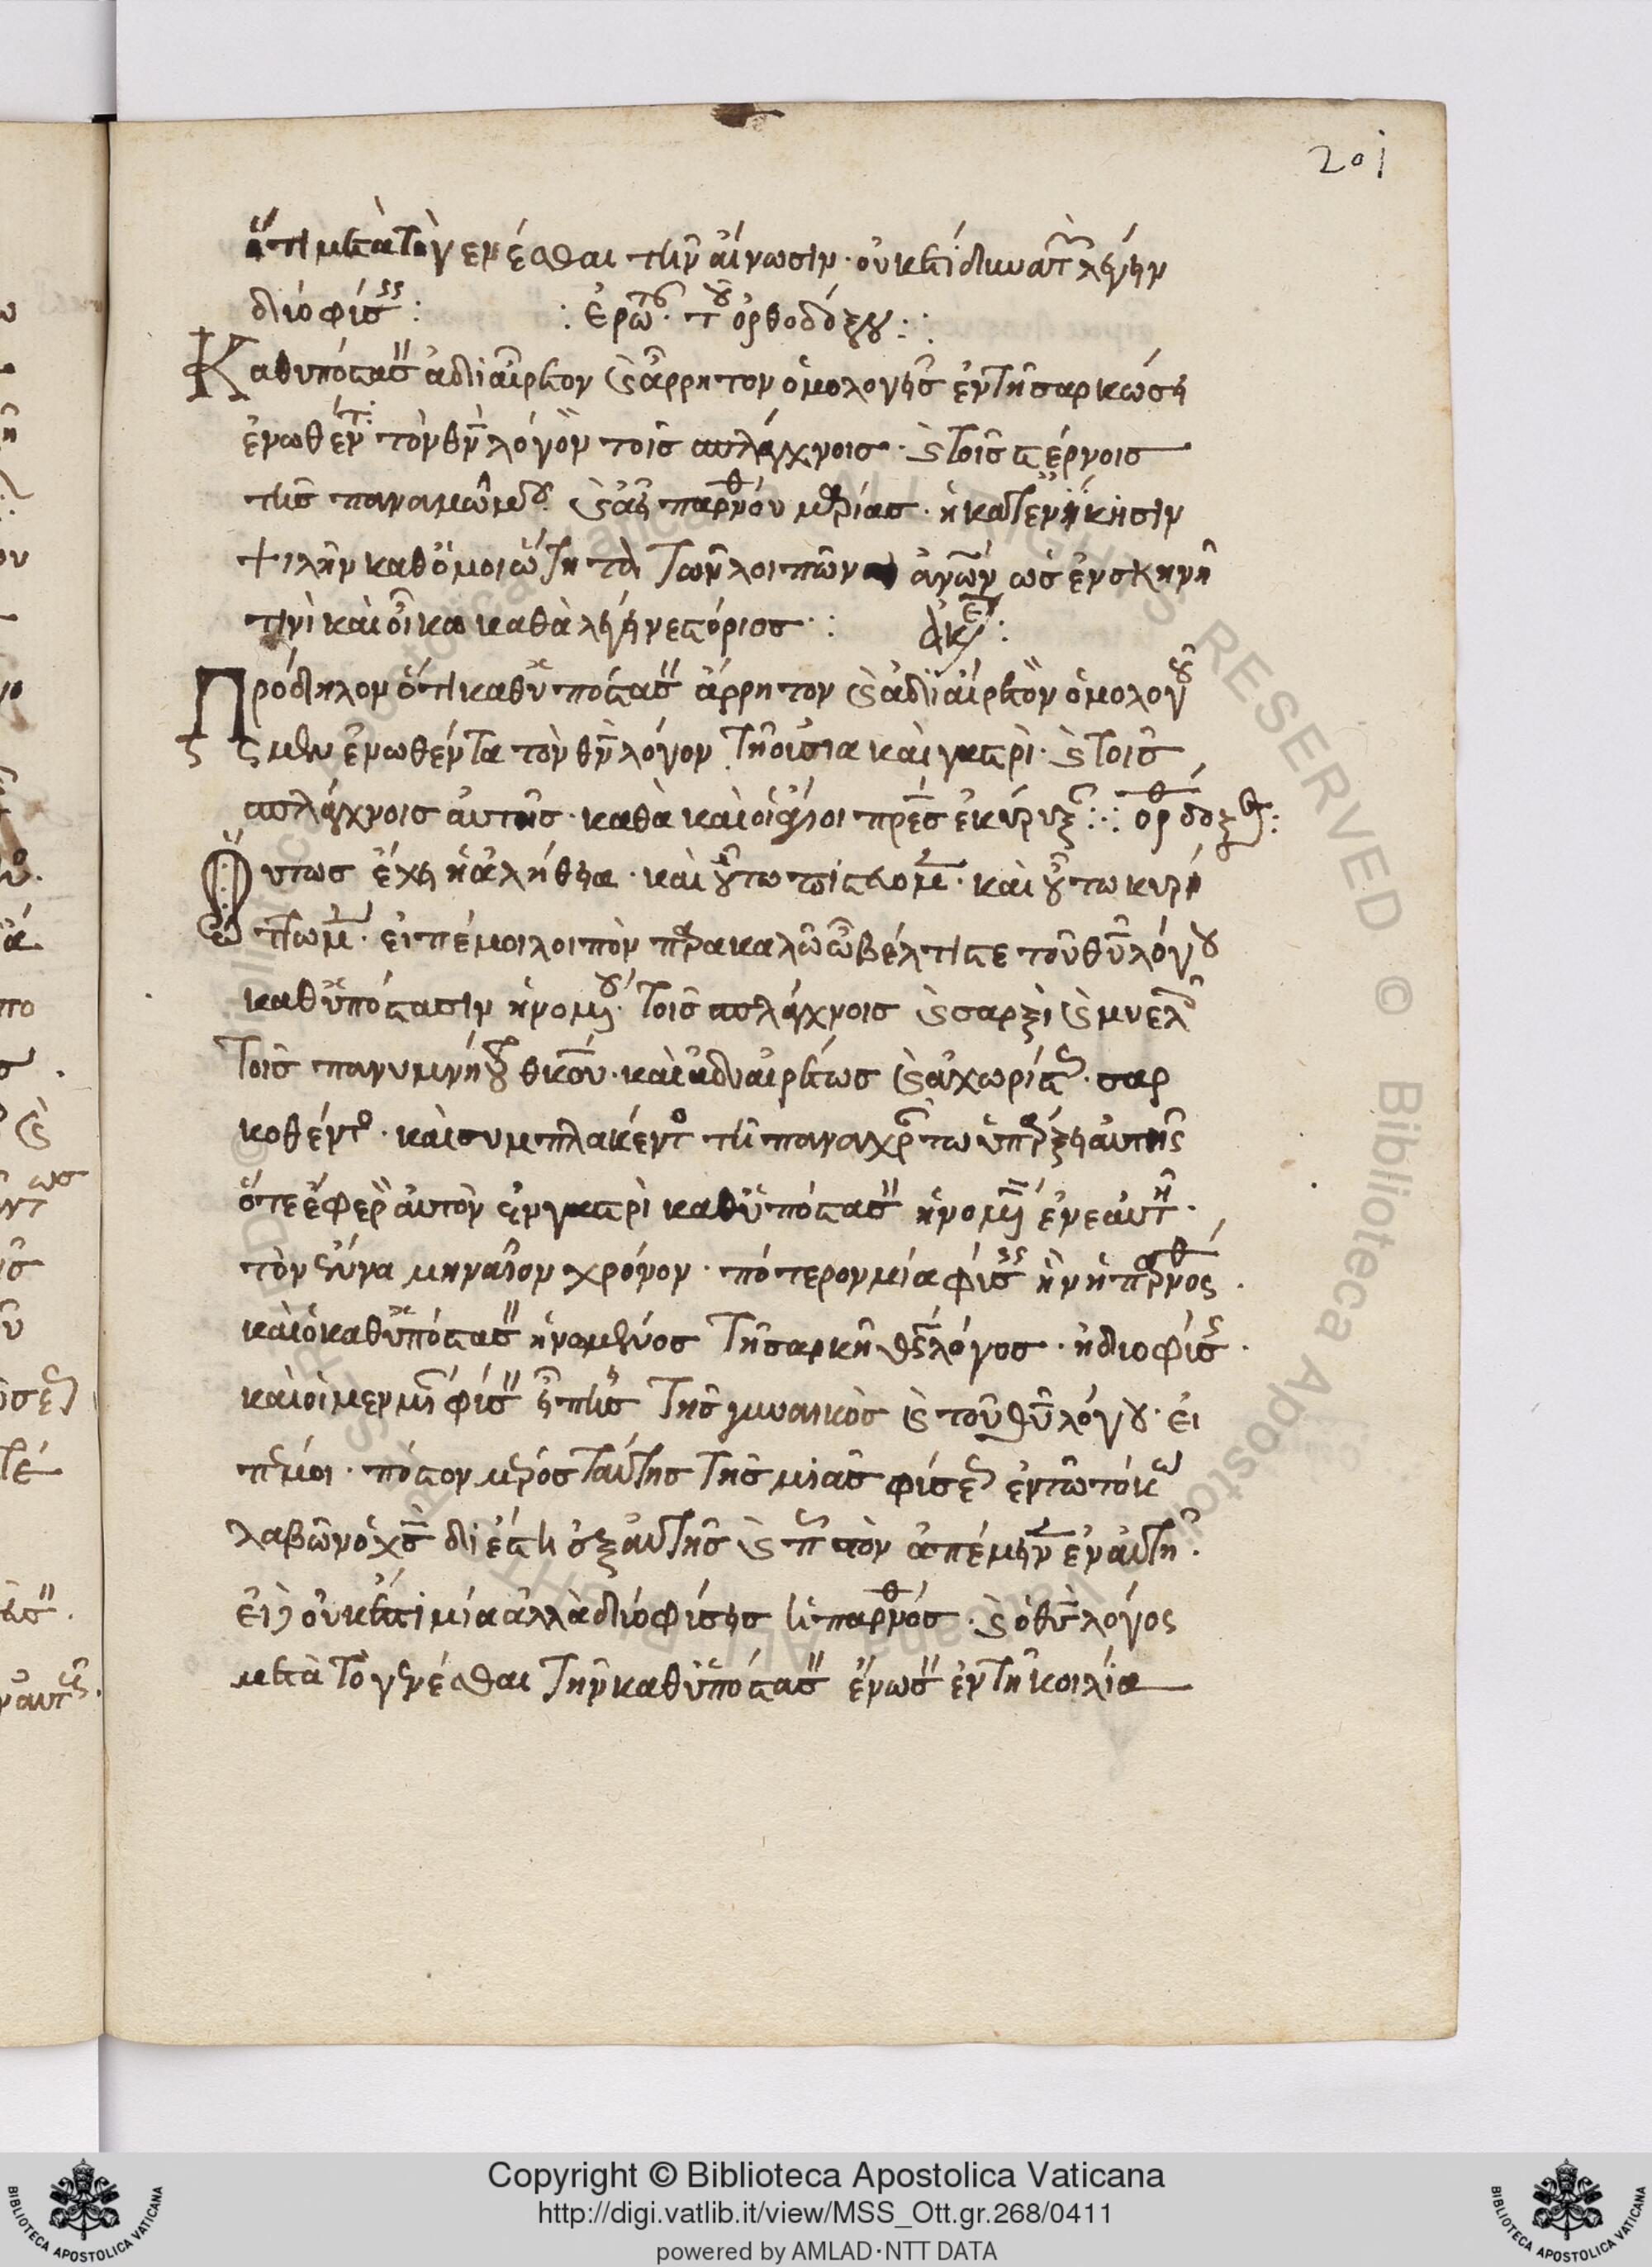 201
ὅτι μετὰ τὸ γενέσθαι τὴν αἵνωσιν · οὐκέτι δυνατ λέγειν
δύο φύσ : : ἐρώτ · τ ὀρθοδόξου :
Καθυπόστασ ἀδιαίρετον καὶ ἄρρητον ὁμολογεῖς ἐν τῆ σαρκώσει
ἑνωθέντ τὸν θν λόγον τοῖς σπλάγχνοις · καὶ τοῖς στέρνοις
τῆς παναμώμου καὶ ἀει παρθνου μαρίας · ἢ κατενοίκησιν
ψιλὴν καθομοιώτητα τῶν λοιπῶν ἀνων ὡς ἐν σκηνῆ
τινὶ καὶ οἴκω καθὰ λέγει νεστόριος : ἀκεφ :
Πρόδηλον ὅτι καθ ὑπόστασ ἄρρητον καὶ ἀδιαίρετον ὁμολογοῦ
μεν ἑνωθέντα τὸν θν λόγον τῆ οὐσία καὶ γαστρὶ · καὶ τοῖς
σπλάγχνοις αὐτῆς · καθὰ καὶ οἱ ἅγιοι πρες ἐκύρυξ : ορθδοξ :
Οὕτως ἔχει ἡ ἀλήθεια · καὶ οὕτω πιστεύομ · καὶ οὕτω κυρύ
ττωμ · εἰπέ μοι λοιπὸν παρακαλῶ ὦ βέλτιστε τοῦ θυ λόγου
καθ ὑπόστασιν ἡνομένου · τοῖς σπλάγχνοις καὶ σαρξὶ καὶ μυελ
τοῖς πανυμνήτου θκου · καὶ ἀδιαιρέτως καὶ ἀχωρίστ · σαρ
κοθέντο · καὶ συμπλακέντο τῆ παναχράντω ὑπάρξει αὐτῆς
ὅτε ἔφερ αὐτὸν ἐν γαστρὶ καθ ὑπόστασ ἡνομέν ἐν ἑαυτῆ ·
τὸν ἐννα μηναῖον χρόνον · πότερον μία φύσις ἦν ἡ παρθνος ·
καὶ ὁ καθ ὑπόστασ ἡνομένος τῆ σαρκὶ θς λόγος · ἢ δύο φύσ ·
καὶ οἱ μεν μι φύσ εἴπης τῆς γυναικὸς καὶ τοῦ θυ λόγου · εἰ
πέ μοι · πόστον μέρος ταύτης τῆς μιᾶς φύσε ἐν τῶ τόκω
λαβῶν ὁ χς διέστη ἐξ αὐτῆς καὶ π τὸν ἀπέμεινεν ἐν αὐτῆ ·
εἰ οὐκέτι μία ἀλλὰ δύο φύσεις ἡ παρθνος · καὶ ὁ θς λόγος
μετὰ τὸ γενέσθαι τὴν καθ ὑπόστασ ἕνωσ ἐν τῆ κοιλία
Copyright © Biblioteca Apostolica Vaticana
http://digi.vatlib.it/view/MSS_Ott.gr.268/0411
powered by AMLAD·NTT DATA